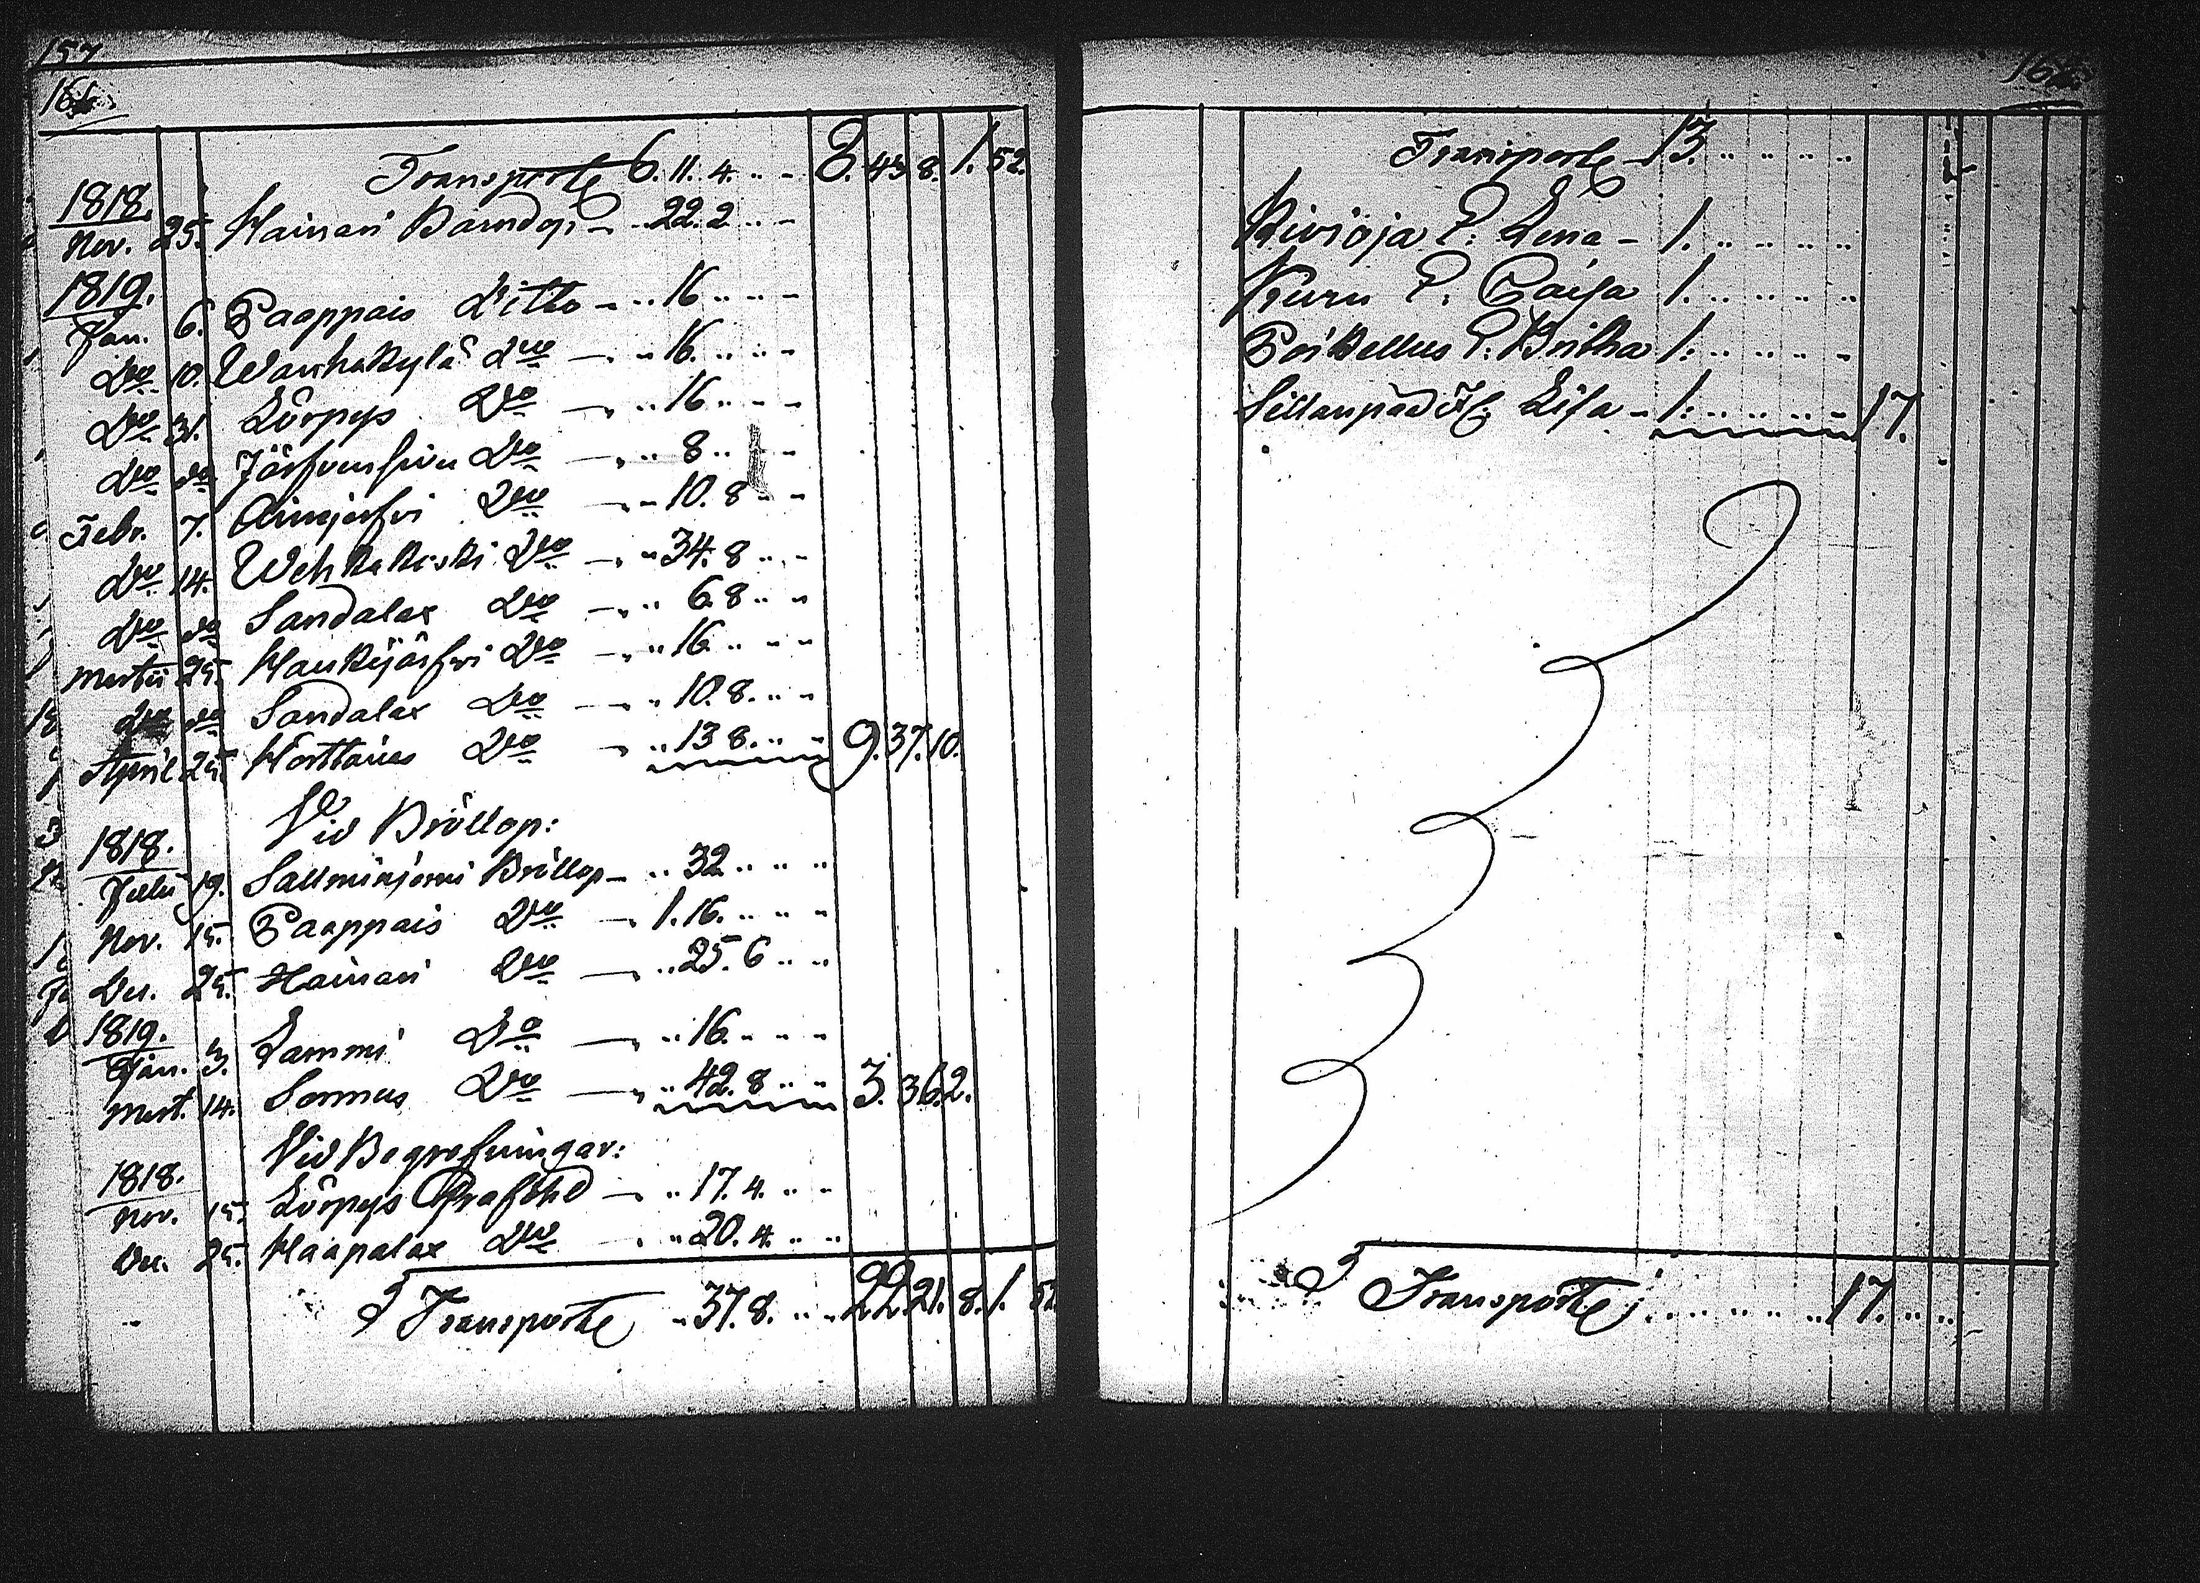 157
Transporte 6. 11. 4. .. - 8. 43. 8. 1. 52.
1818.
Nov. 25. Hainari Barndop - .. 22. 2. .. -
1819.
Jan. 6. Paappais Ditto - .. 16 .. .. -
Do 10. Wanhakylä Do - .. 16. .. .. -
Do 31. Körpys Do - .. 16 .. .. -
Do do Järfvensivu Do - .. 8 .. .. -
Febr. 7. Ainnjerfvi Do - .. 10. 8 .. -
Do 14. Wehkakoski Do - .. 34. 8 .. -
Do do Sandalax Do - .. 6. 8 .. -
Martii 25. Haukijärfvi Do - .. 16 .. .. -
Do do Sandalax Do - .. 10. 8. .. -
April 25. Horttanes Do - .. 13 8. .. .. 9. 37. 10.
Vid Bröllop:
1818.
Julii 19. Sallminjormi Bröllop - .. 32 .. .. ..
Nov. 15. Paappais Do - 1. 16. .. .. -
Dec. 25. Hainari Do - .. 25. 6 .. ..
1819.
Jan. 3. Lammi Do - .. 16. .. .. -
Mart. 14. Sormus Do - .. 42. 8 .. .. 3. 36. 2.
Vid Begrafningar:
1818.
Nov. 15. Körpys Graföhl - .. 17. 4. .. -
Dec. 25. Haapalax Do - .. 20. 4. .. ..
Transporte .. 37. 8. .. .. 22. 21. 8. 1. 52
Transporte 13. .. .. .. .. ..
Kivioja P. Lena - 1. .. .. .. ..
Kuru P. Caisa 1. .. .. .. ..
Poikellus P. Britha 1. .. .. .. -
Sillanpää H. Lisa - 1. .. .. .. - 17.
Transporte .. .. .. .. .. 17. .. ..